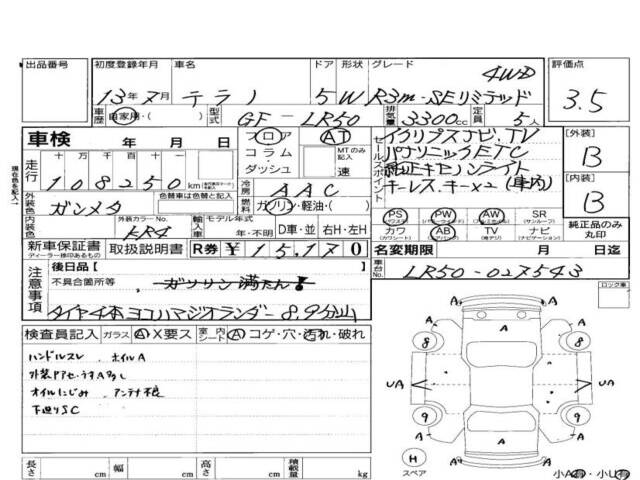 出品番号 初度登録年月 車名 ドア 形状 グレード 評価点
13年7月 テラノ 5 W R3m-SEリミテッド 4WD 3.5
車歴 自家用・( ) 型式 GF-LR50 排気量 3300cc 定員 5人
車検 年 月 日 フロア AT イクリプスナビ.TV [外装]
コラム MTのみ記入 パナソニックETC B
走行 十万千百十 108250km ダッシュ 速 セールスポイント 純正キセノンライト
外装色 ガンメタ 色替車は色替と記入 冷房 AAC キーレス.キー×2(車内) [内装]
燃料 ガソリン・軽油・( ) B
内装色 外装カラーNo. KR4 輸入車 モデル年式 年・不明 D車・並 右H・左H PS PW AW SR(サンルーフ) 純正品のみ丸印
新車保証書 取扱説明書 R券 ¥15,170 カワ(カワシート) AB(エアバッグ) TV ナビ(ナビゲーション)
ディーラー捺印あるもの 名変期限 月 日迄
注意事項 後日品[ ] 車台No. LR50-027543
不具合箇所等 ガソリン満たん! ロック車
タイヤ4本ヨコハマジオランダー8.9分山
検査員記入 ガラス A・X要ス 室内シート A コゲ・穴・汚れ・破れ
ハンドルスレ ホイルA
オイルにじみ アンテナ不良
下廻りSC
A A A
8 8
UA UA
9 9
A A A
H スペア
小A有・小U有
長さ cm 幅 cm 高さ cm 積載量 kg
現在色を記入